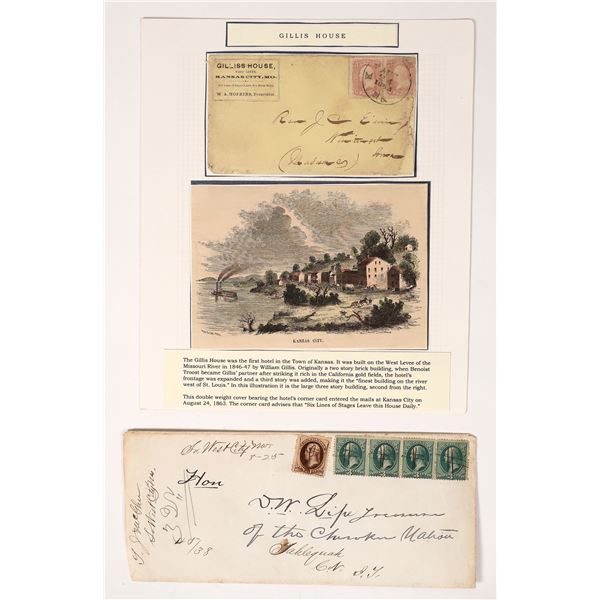 GILLIS HOUSE
GILLISS HOUSE,
WEST LEVEE,
KANSAS CITY, MO.
Six Lines of Stages Leave this House Daily.
W. A. HOPKINS, Proprietor.
Rev J C
Iowa
KANSAS CITY.
The Gillis House was the first hotel in the Town of Kansas. It was built on the West Levee of the
Missouri River in 1846-47 by William Gillis. Originally a two story brick building, when Benoist
Troost became Gillis' partner after striking it rich in the California gold fields, the hotel's
frontage was expanded and a third story was added, making it the "finest building on the river
west of St. Louis." In this illustration it is the large three story building, second from the right.
This double weight cover bearing the hotel's corner card entered the mails at Kansas City on
August 24, 1863. The corner card advises that "Six Lines of Stages Leave this House Daily."
So West City Mo
5-25
Hon
D. W. Lipe Treasurer
of the Cherokee Nation
Tahlequah
C.N. I.T.